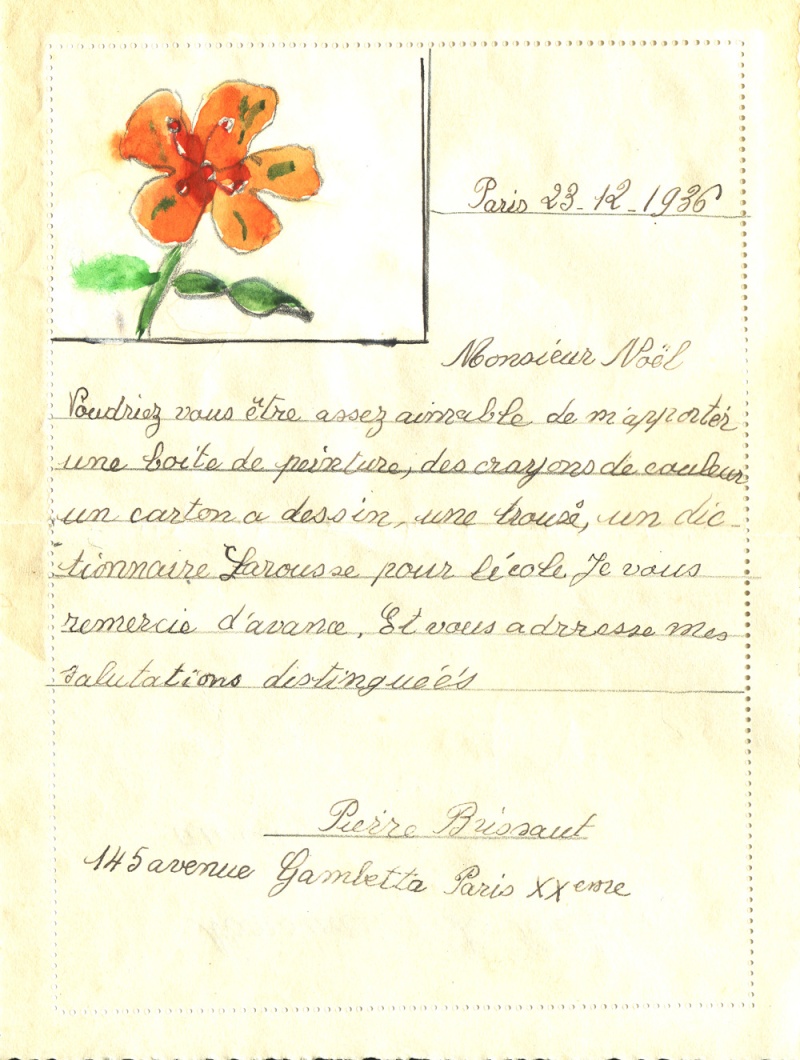 Paris 23-12-1936
Monsieur Noël
Voudriez vous être assez aimable de m'apporter
une boite de peinture, des crayons de couleur
un carton a dessin, une trousse, un dic-
tionnaire Larousse pour l'école. Je vous
remercie d'avance. Et vous adrresse mes
salutations distinguéés
Pierre Brissaut
145 avenue Gambetta Paris XXeme